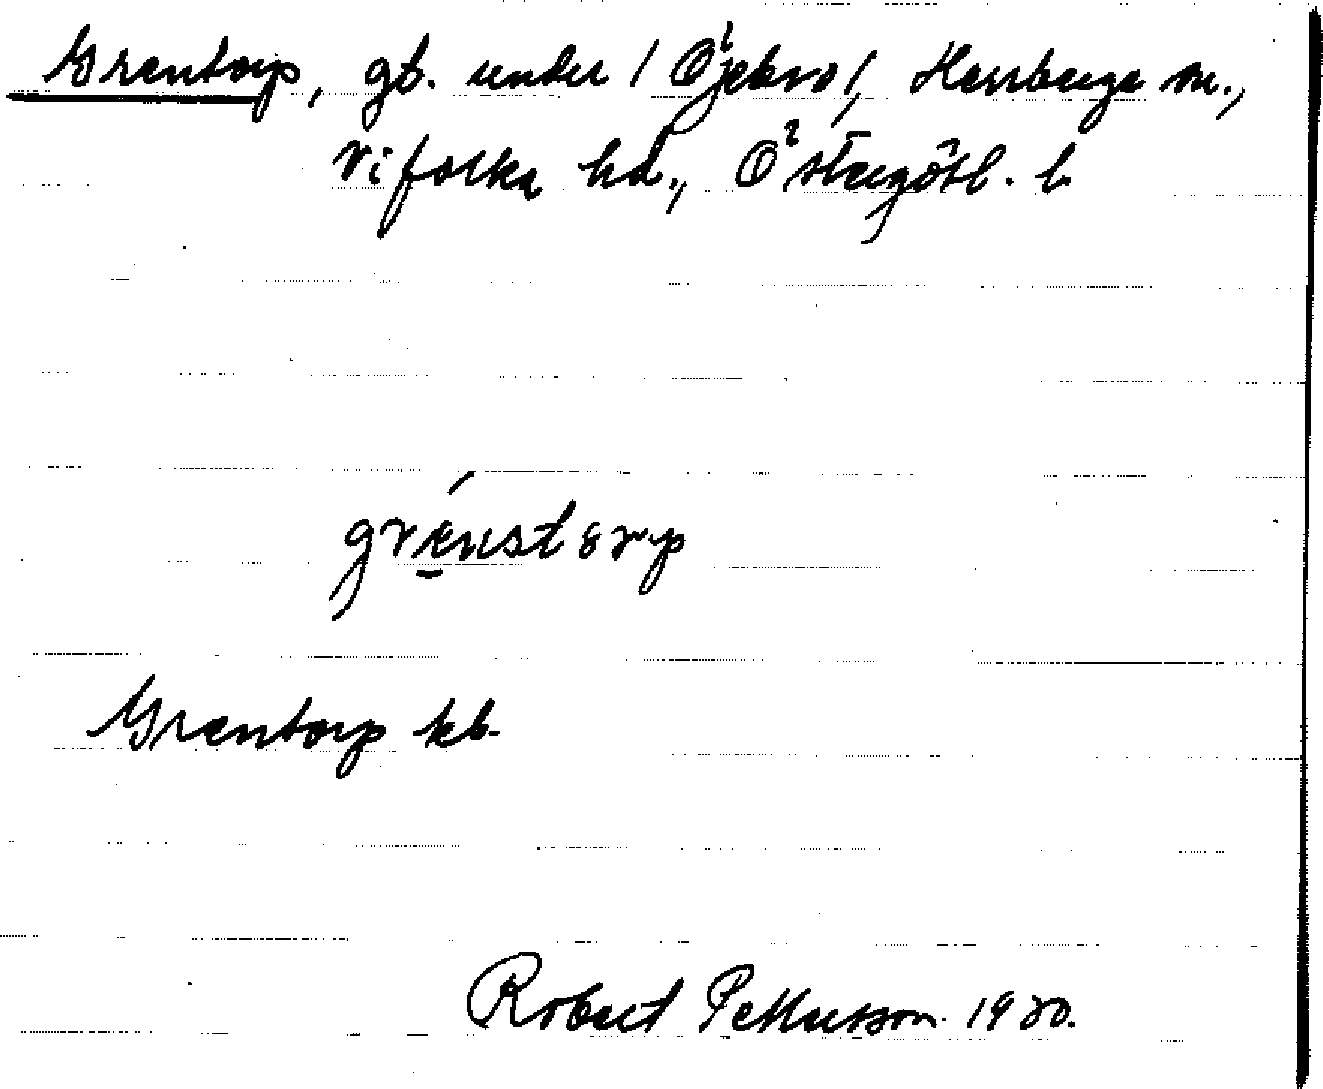 Grentorp, gd. under / Öjebro /, Herrberga sn.,
Vifolka hd., Östergötl. l.
grénstorp
Grentorp kb.
Robert Pettersson 1920.